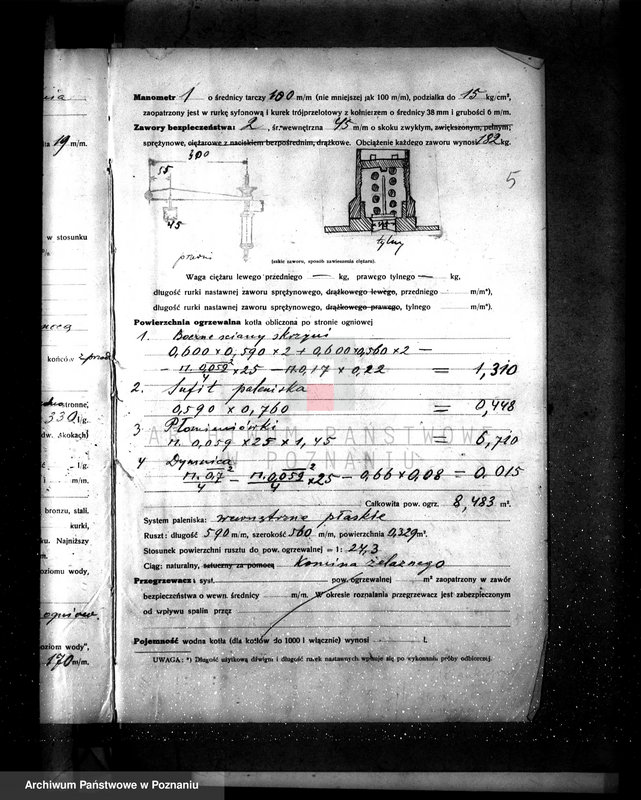 Manometr 1 o średnicy tarczy 100 m/m (nie mniejszej jak 100 m/m), podziałka do 15 kg/cm²,
zaopatrzony jest w rurkę syfonową i kurek trójprzelotowy z kołnierzem o średnicy 38 mm i grubości 6 m/m.
Zawory bezpieczeństwa: 2, śr. wewnętrzna 45 m/m o skoku zwykłym, zwiększonym, pełnym,
sprężynowe, ciężarowe z naciskiem bezpośrednim, drążkowe. Obciążenie każdego zaworu wynosi 182 kg.
5
55
45
przedni
tylny
(szkic zaworu, sposób zawieszenia ciężaru).
Waga ciężaru lewego przedniego — kg, prawego tylnego — kg,
długość rurki nastawnej zaworu sprężynowego, drążkowego lewego, przedniego m/m*),
długość rurki nastawnej zaworu sprężynowego, drążkowego prawego, tylnego m/m*).
Powierzchnia ogrzewalna kotła obliczona po stronie ogniowej
1. Boczne ściany skrzyni
0,600 × 0,590 × 2 + 0,600 × 0,560 × 2 —
- π. 0,059²/4 × 25 — π. 0,17 × 0,22 = 1,310
2. Sufit paleniska
0,590 × 0,760 = 0,448
3. Płomieniówki
π. 0,059 × 25 × 1,45 = 6,710
4. Dymnica
π. 0,7²/4 — π. 0,059²/4 × 25 — 0,66 × 0,08 = 0.015
Całkowita pow. ogrz. 8,483 m².
System paleniska: wewnętrzne płaskie
Ruszt: długość 590 m/m, szerokość 560 m/m, powierzchnia 0,329 m².
Stosunek powierzchni rusztu do pow. ogrzewalnej = 1: 24,3
Ciąg: naturalny, sztuczny za pomocą Komina żelaznego
Przegrzewacz: syst. pow. ogrzewalnej m² zaopatrzony w zawór
bezpieczeństwa o wewn. średnicy m/m. W okresie rozpalania przegrzewacz jest zabezpieczonym
od wpływu spalin przez
Pojemność wodna kotła (dla kotłów do 1000 l włącznie) wynosi l.
UWAGA: *) Długość użytkową dźwigni i długość rurek nastawnych wpisuje się po wykonaniu próby odbiorczej.
19 m/m.
w stosunku
końców
330 l/g.
dw. skokach)
l/g.
m/m.
bronzu, stali.
kurki,
ku. Najniższy
oziomu wody,
oziom wody",
170 m/m.
ARCHIWUM PAŃSTWOWE
W POZNANIU
Archiwum Państwowe w Poznaniu